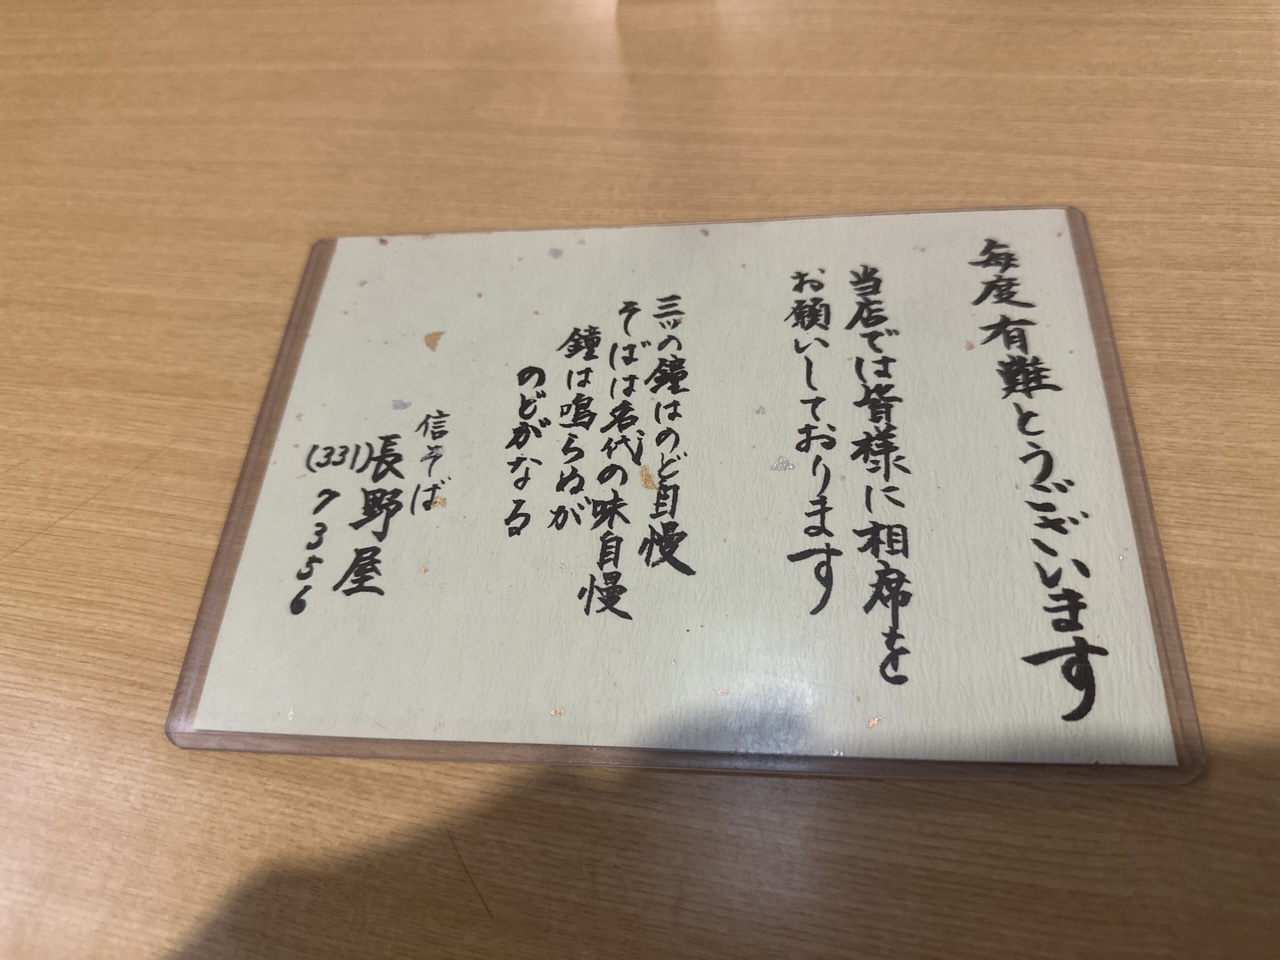 毎度有難とうございます
当店では皆様に相席を
お願いしております
三ッの鐘はのど自慢
そばは名代の味自慢
鐘は鳴らぬが
のどがなる
信そば
長野屋
(331)7356